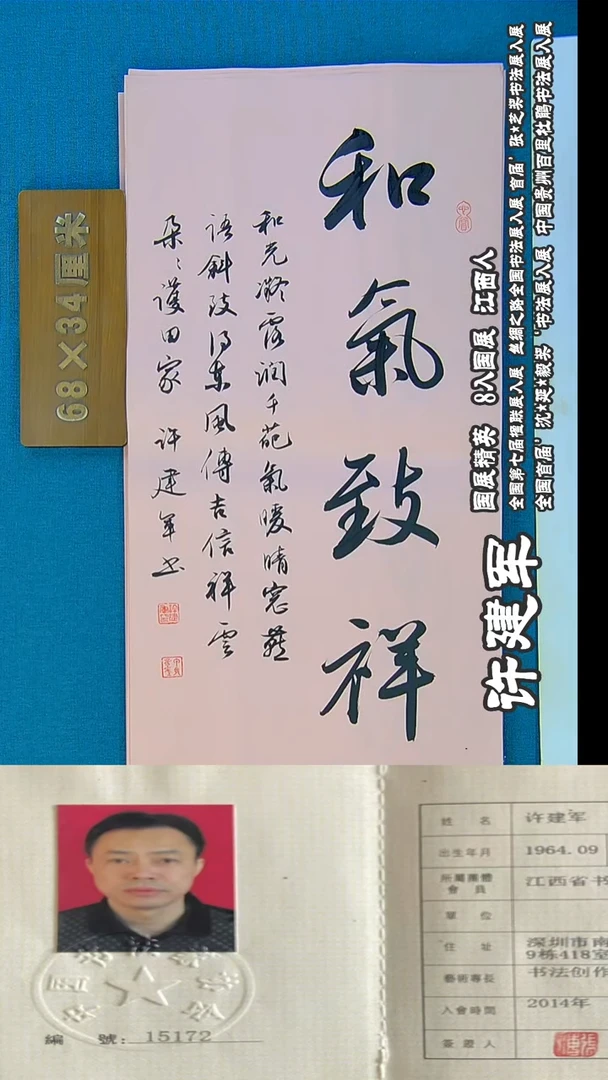 和氣致祥
和光凝露润千葩氣暖晴窓燕
语斜致得东風傳吉信祥雲
朵〻護田家 许建军书
68×34厘米
许建军
国展精英 8入国展 江西人
全国第七届楹联展入展 丝绸之路全国书法展入展 首届’张*芝奖书法展入展
全国首届’沈*延*毅奖‘书法展入展 中国贵州百里杜鹃书法展入展
編 號：15172
姓 名 许建军
出生年月 1964.09
所屬團體會員 江西省书
單 位
住 址 深圳市南
9栋418室
藝術專長 书法创作
入會時間 2014年
簽證人